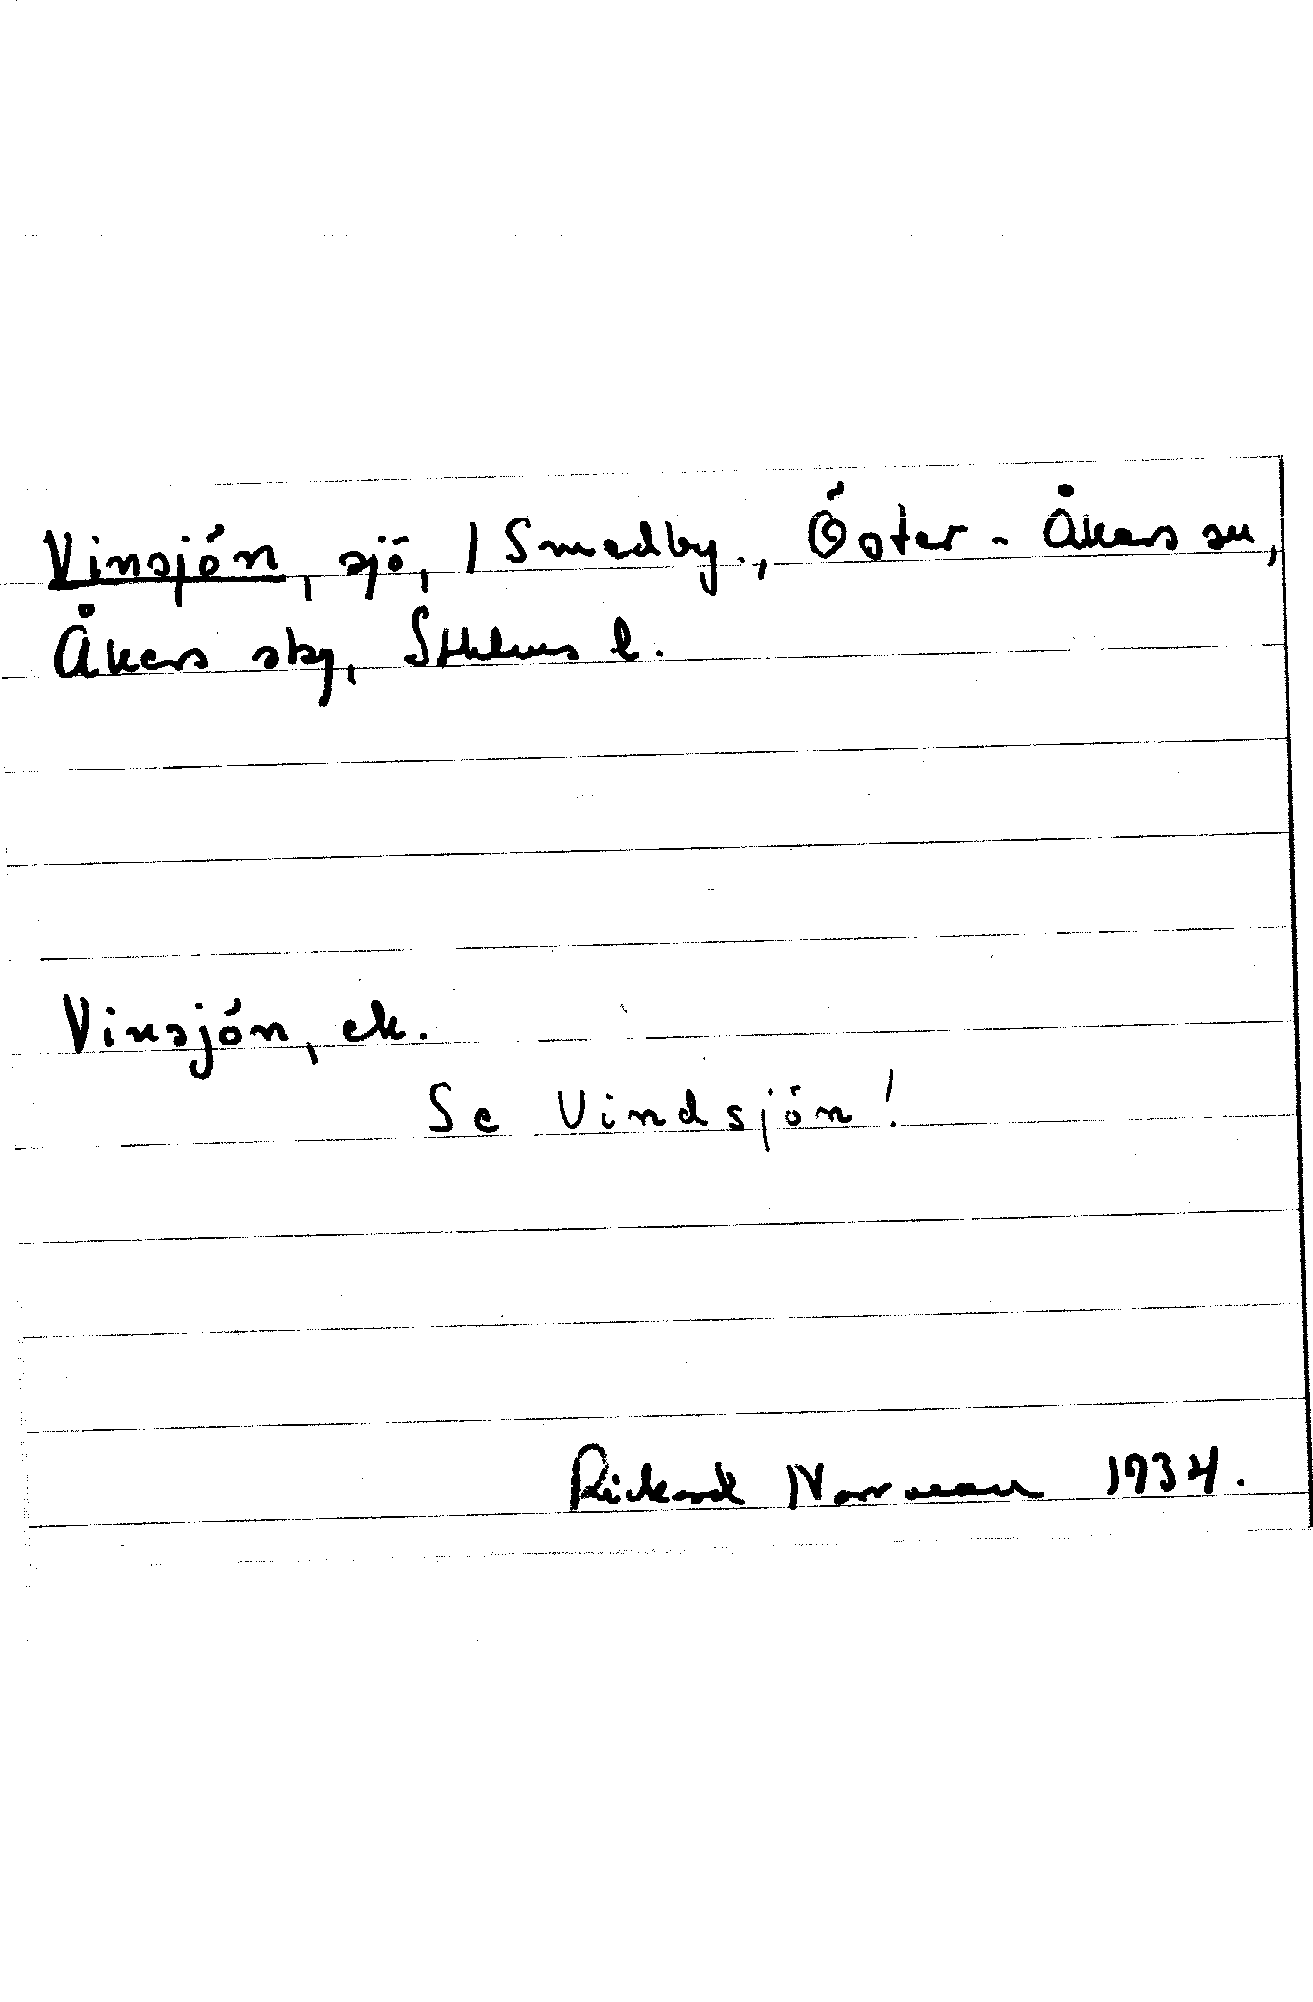 Vinsjön, sjö, / Smedby., Öster-Åkers sn,
Åkers sbg, Sthlms l.
Vinsjön, ek.
Se Vindsjön!
Rickard Norrman 1934.